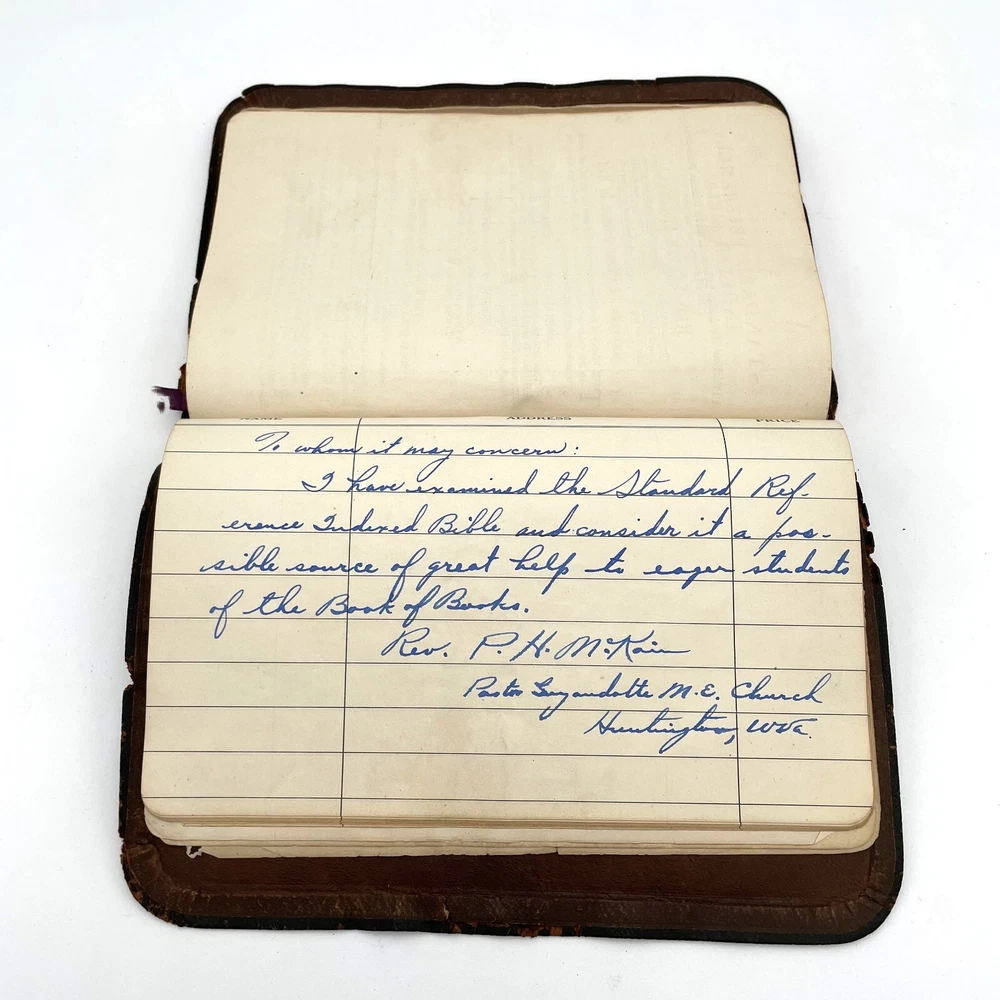 NAME ADDRESS PRICE
To whom it may concern:
I have examined the Standard Ref-
erence Indexed Bible and consider it a pos-
sible source of great help to eager students
of the Book of Books.
Rev. P. H. McKain
Pastor Guyandotte M.E. Church
Huntington, W.Va.